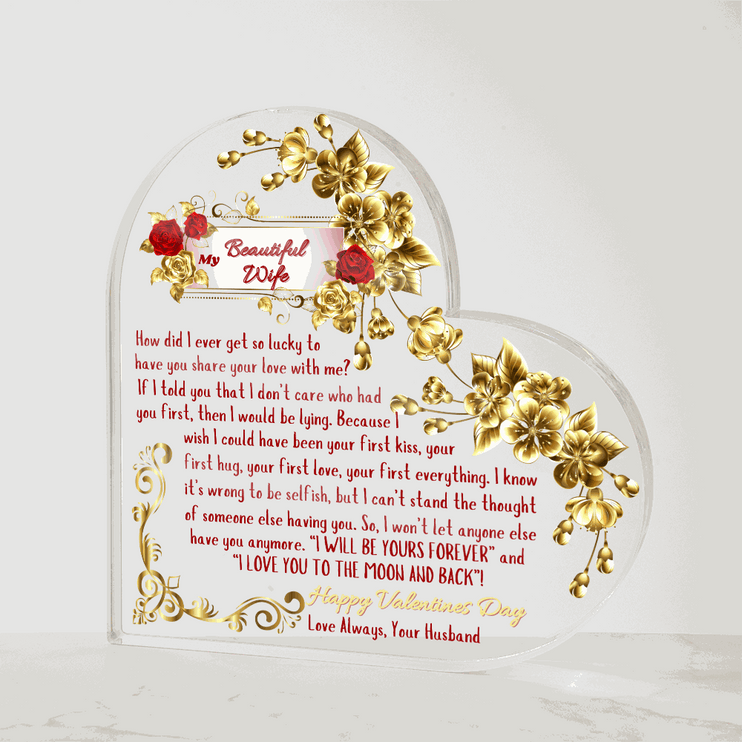 My Beautiful
Wife
How did I ever get so lucky to
have you share your love with me?
If I told you that I don't care who had
you first, then I would be lying. Because I
wish I could have been your first kiss, your
first hug, your first love, your first everything. I know
it's wrong to be selfish, but I can't stand the thought
of someone else having you. So, I won't let anyone else
have you anymore. "I WILL BE YOURS FOREVER" and
"I LOVE YOU TO THE MOON AND BACK"!
Happy Valentines Day
Love Always, Your Husband